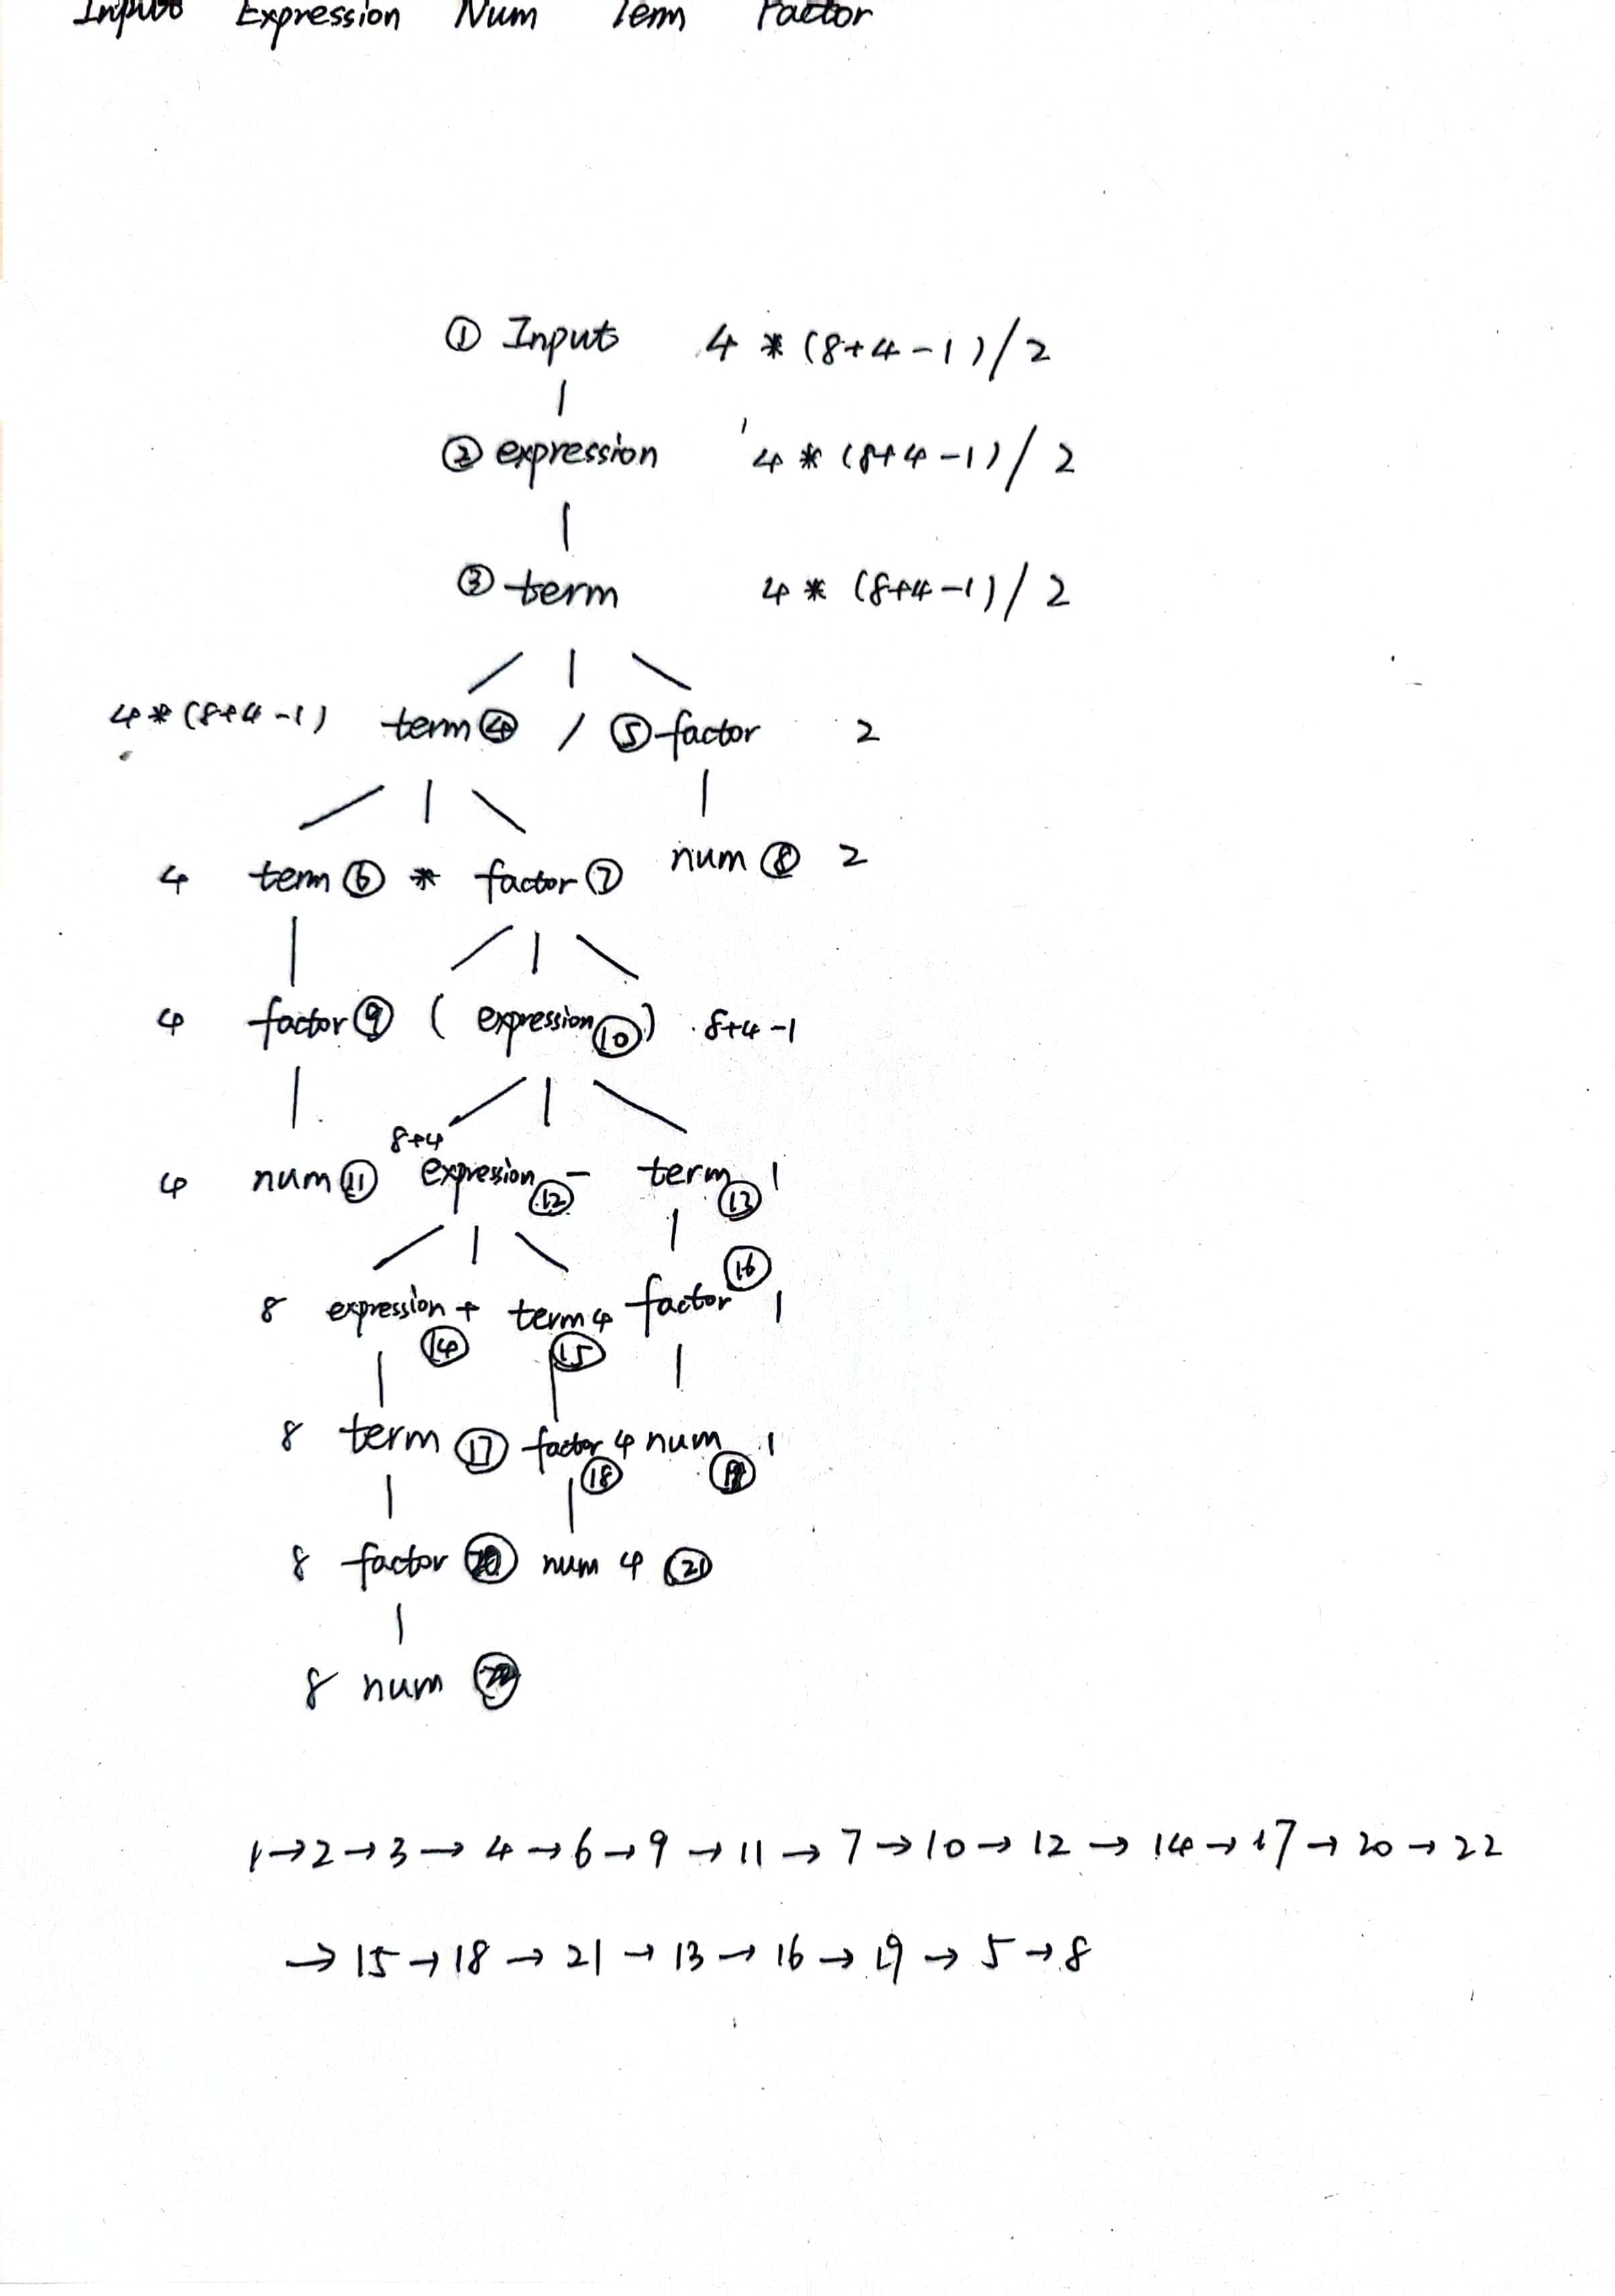 Input Expression Num Term Factor
① Input 4 * (8+4-1)/2
② expression 4 * (8+4-1)/2
③ term 4 * (8+4-1)/2
4*(8+4-1) term④ / ⑤factor 2
4 term⑥ * factor⑦ num⑧ 2
4 factor⑨ ( expression⑩ ) 8+4-1
8+4
4 num⑪ expresion⑫ - term⑬ 1
8 expression⑭ + term 4⑮ factor⑯ 1
8 term⑰ factor 4⑱ num⑲ 1
8 factor⑳ num 4 ㉑
8 num ㉒
1→2→3→4→6→9→11→7→10→12→14→17→20→22
→15→18→21→13→16→19→5→8